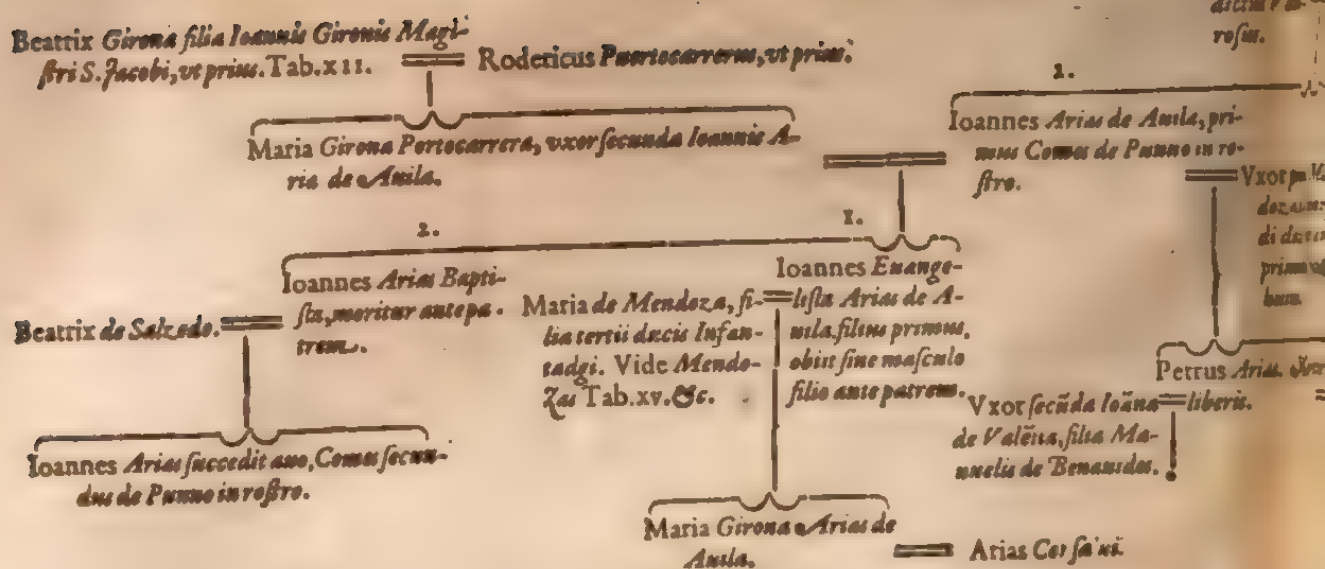 Beatrix Girona filia Ioannis Gironis Magi-
ſtri S. Jacobi, vt prius. Tab. xII.
Rodericus Puertocarrerus, vt prius.
roſus.
Maria Girona Portocarrera, vxor ſecunda Ioannis A-
ria de Auila.
1.
Ioannes Arias de Auila, pri-
mus Comes de Punno in ro-
ſtro.
Vxor
2.
Ioannes Arias Bapti-
ſta, moritur ante pa-
trem.
Beatrix de Salzedo.
Maria de Mendoza, fi-
lia tertii ducis Infan-
tadgi. Vide Mendo-
zas Tab. xv. &c.
1.
Ioannes Euange-
liſta Arias de A-
uila, filius primus,
obiit ſine maſculo
filio ante patrem.
Petrus Arias.
liberis.
Vxor ſecũda Ioãna
de Valẽtia, filia Ma-
nuelis de Benauides.
Ioannes Arias ſuccedit auo, Comes ſecun-
dus de Punno in roſtro.
Maria Girona Arias de
Auila.
Arias